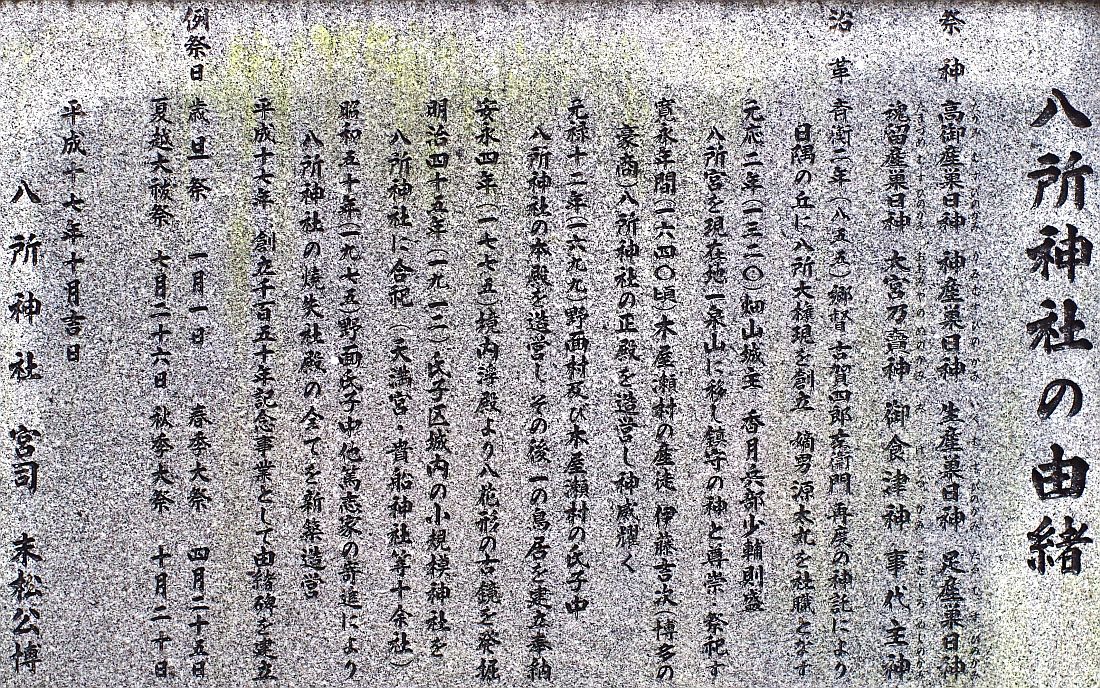 八所神社の由緒
祭神 高御産巣日神 神産巣日神 生産巣日神 足産巣日神
魂留産巣日神 大宮乃賣神 御食津神 事代主神
沿革 斉衡二年(八五五)郷督古賀四郎左衛門 再度の神託により
日隅の丘に八所大権現を創立 嫡男源太丸を社職となす
元応二年(一三二〇)畑山城主 香月兵部少輔則盛
八所宮を現在地一泉山に移し鎮守の神と尊崇・祭祀す
寛永年間(一六四〇頃)木屋瀬村の産徒 伊藤吉次 博多の
豪商八所神社の正殿を造営し神威耀く
元禄十二年(一六九九)野面村及び木屋瀬村の氏子中
八所神社の本殿を造営し その後一の鳥居を建立奉納
安永四年(一七七五)境内浮殿より八花形の古鏡を発掘
明治四十五年(一九一二)氏子区域内の小規模神社を
八所神社に合祀 (天満宮・貴船神社等十余社)
昭和五十年(一九七五)野面氏子中他篤志家の寄進により
八所神社の焼失社殿の全てを新築造営
平成十七年 創立千百五十年記念事業として由緒碑を建立
例祭日 歳旦祭 一月一日 春季大祭 四月二十五日
夏越大祓祭 七月二十六日 秋季大祭 十月二十日
平成十七年十月吉日
八所神社 宮司 末松公博